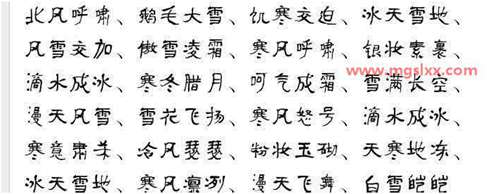 北风呼啸、鹅毛大雪、饥寒交迫、冰天雪地、
风雪交加、傲雪凌霜、寒风呼啸、银妆素裹、
www.mgslxx.com
滴水成冰、寒冬腊月、呵气成霜、雪满长空、
漫天风雪、雪花飞扬、寒风怒号、滴水成冰、
寒意肃杀、冷风瑟瑟、粉妆玉砌、天寒地冻、
冰天雪地、寒风凛冽、漫天飞舞、白雪皑皑、